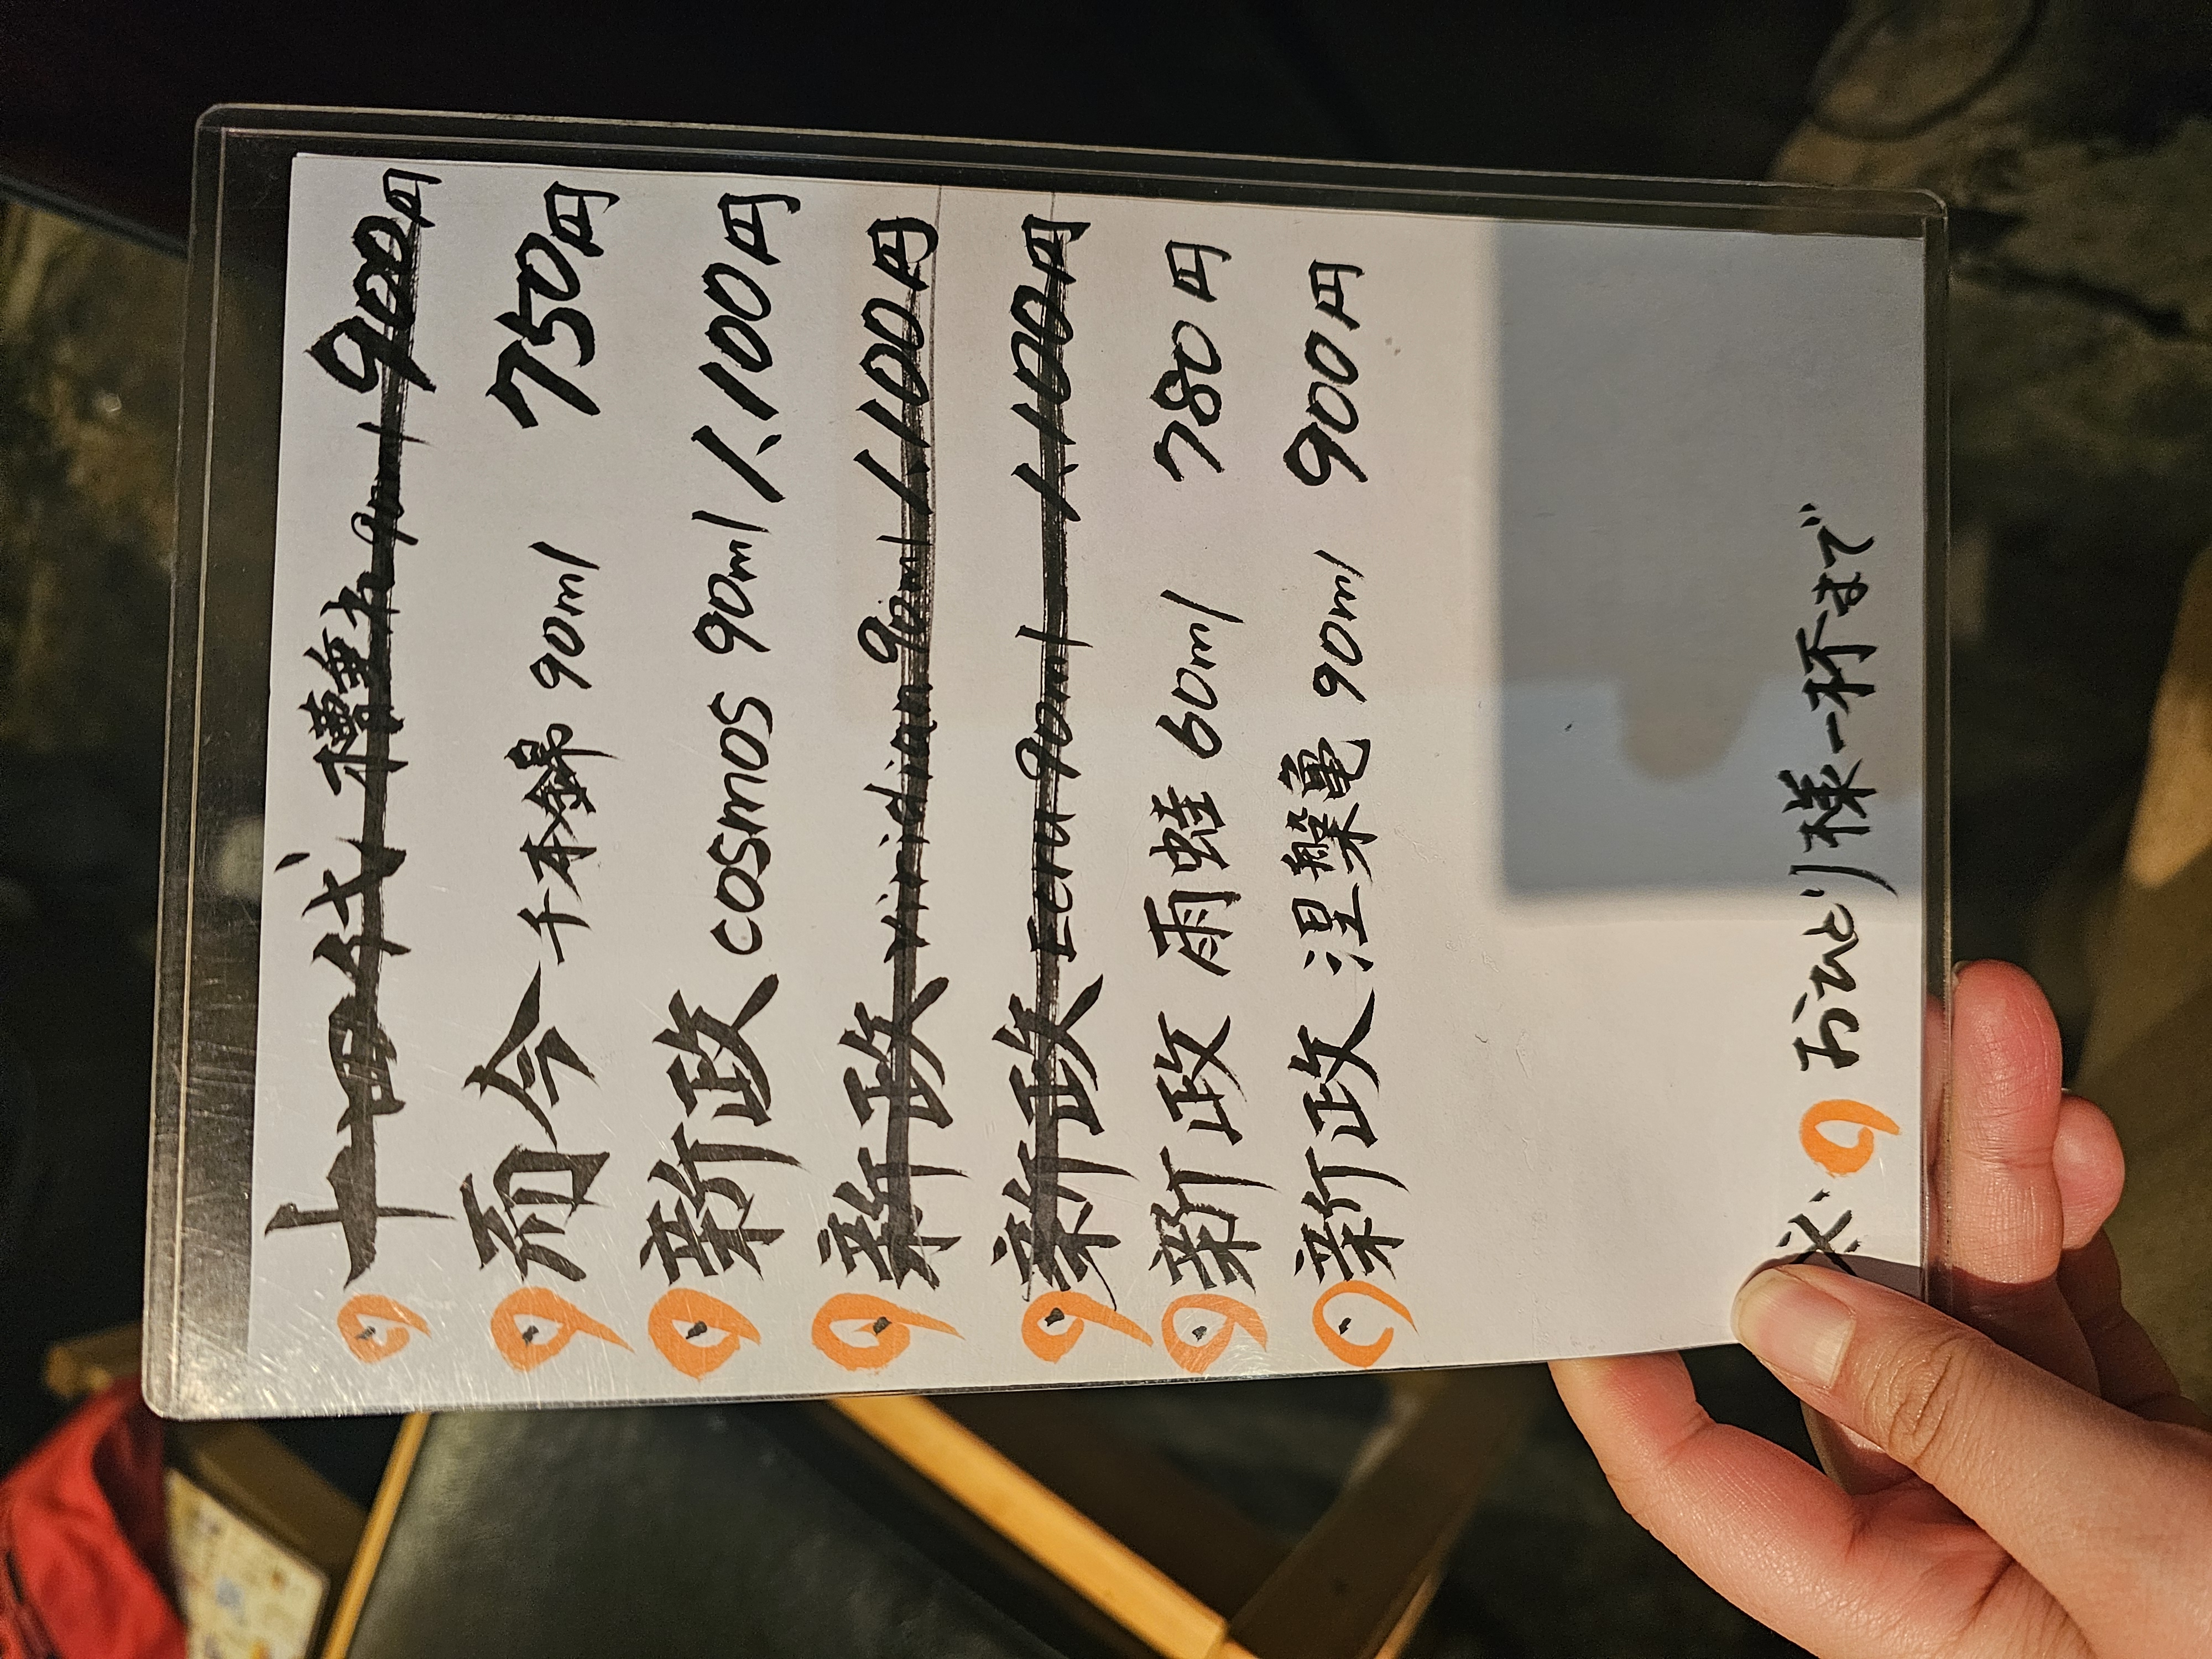 十四代 槽垂れ 90ml 900円
而今 千本錦 90ml 750円
新政 cosmos 90ml 1,100円
新政 viridian 90ml 1,100円
新政 Ecru 90ml 1,100円
新政 雨蛙 60ml 780円
新政 涅槃亀 90ml 900円
※ おひとり様一杯まで